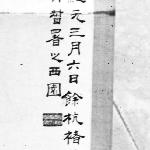 元三月六日餘杭褚
督署之西園